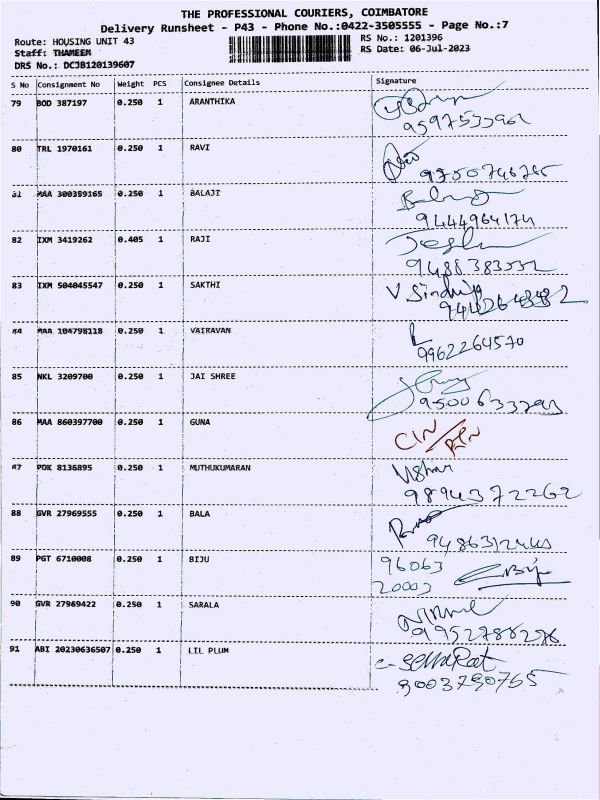 THE PROFESSIONAL COURIERS, COIMBATORE
Delivery Runsheet - P43 - Phone No.:0422-3505555 - Page No.:7
Route: HOUSING UNIT 43 RS No.: 1201396
Staff: THAMEEM RS Date: 06-Jul-2023
DRS No.: DCJB120139607
S No Consignment No Weight PCS Consignee Details Signature
79 BOD 387197 0.250 1 ARANTHIKA
80 TRL 1970161 0.250 1 RAVI
81 MAA 300359165 0.250 1 BALAJI
9444964174
82 IXM 3419262 0.405 1 RAJI
83 IXM 504045547 0.250 1 SAKTHI
84 MAA 104798118 0.250 1 VAIRAVAN
9962264570
85 NKL 3209700 0.250 1 JAI SHREE
86 MAA 860397700 0.250 1 GUNA
87 PDK 8136895 0.250 1 MUTHUKUMARAN
9894372262
88 GVR 27969555 0.250 1 BALA
89 PGT 6710008 0.250 1 BIJU
96063
20003
90 GVR 27969422 0.250 1 SARALA
9952788276
91 ABI 20230636507 0.250 1 LIL PLUM
9003790765